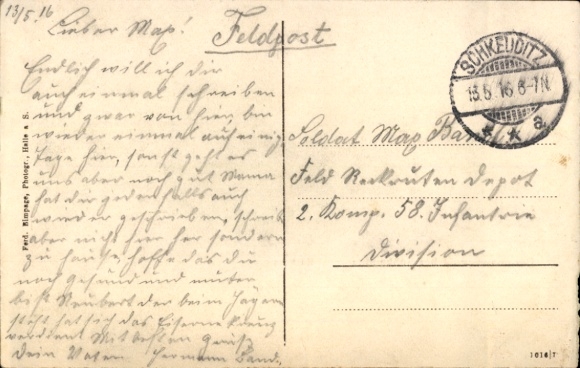 13/5.16
Lieber Max! Feldpost
Endlich will ich dir
auch einmal schreiben
und zwar von hier, bin
wieder einmal auf einig
Tage hier, sonst geht es
uns aber noch gut Mama
hat dir jedenfalls auch
wieder geschrieben, schreib
aber nicht hier her sondern
zu hause, hoffe das du
noch gesund und munter
bist Neubert der beim Jägern
steht hat sich das Eiserne Kreuz
verdient Mit besten Gruß
Dein Vater Hermann
SCHKEUDITZ
13.5.16.6-7N.
* * a
Soldat Max
Feld Reckruten Depot
2. Komp. 58. Infantrie
Division
Ferd. Simpage, Photogr., Halle a S.
1616/7